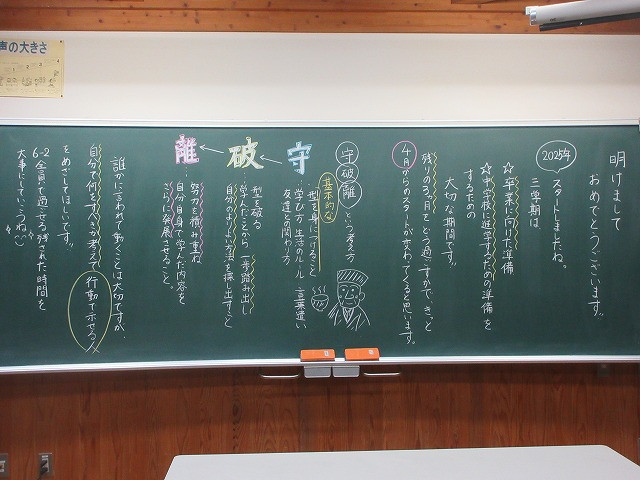 声の大きさ
明けまして
おめでとうございます!!
2025年
スタートしましたね。
三学期は
☆卒業に向けた準備
☆中学校に進学するための準備を
するための
大切な期間です!!
残りの3ヶ月をどう過ごすかで、きっと
4月からのスタートが変わってくると思います。
守破離という考え方
守
基本的な
型を身につけること
学び方 生活のルール 言葉遣い
友達との関わり方
破
型を破る
学んだことから一歩踏み出し
自分のよりよい方法を探し出すこと
離
努力を積み重ね
自分自身で学んだ内容を
さらに発展させること。
誰かに言われて動くことは大切ですが、
自分で何をすべきか考えて行動で示せる人
をめざしてほしいです!!
6-2全員で過ごせる残された時間を
大事にしていこうね